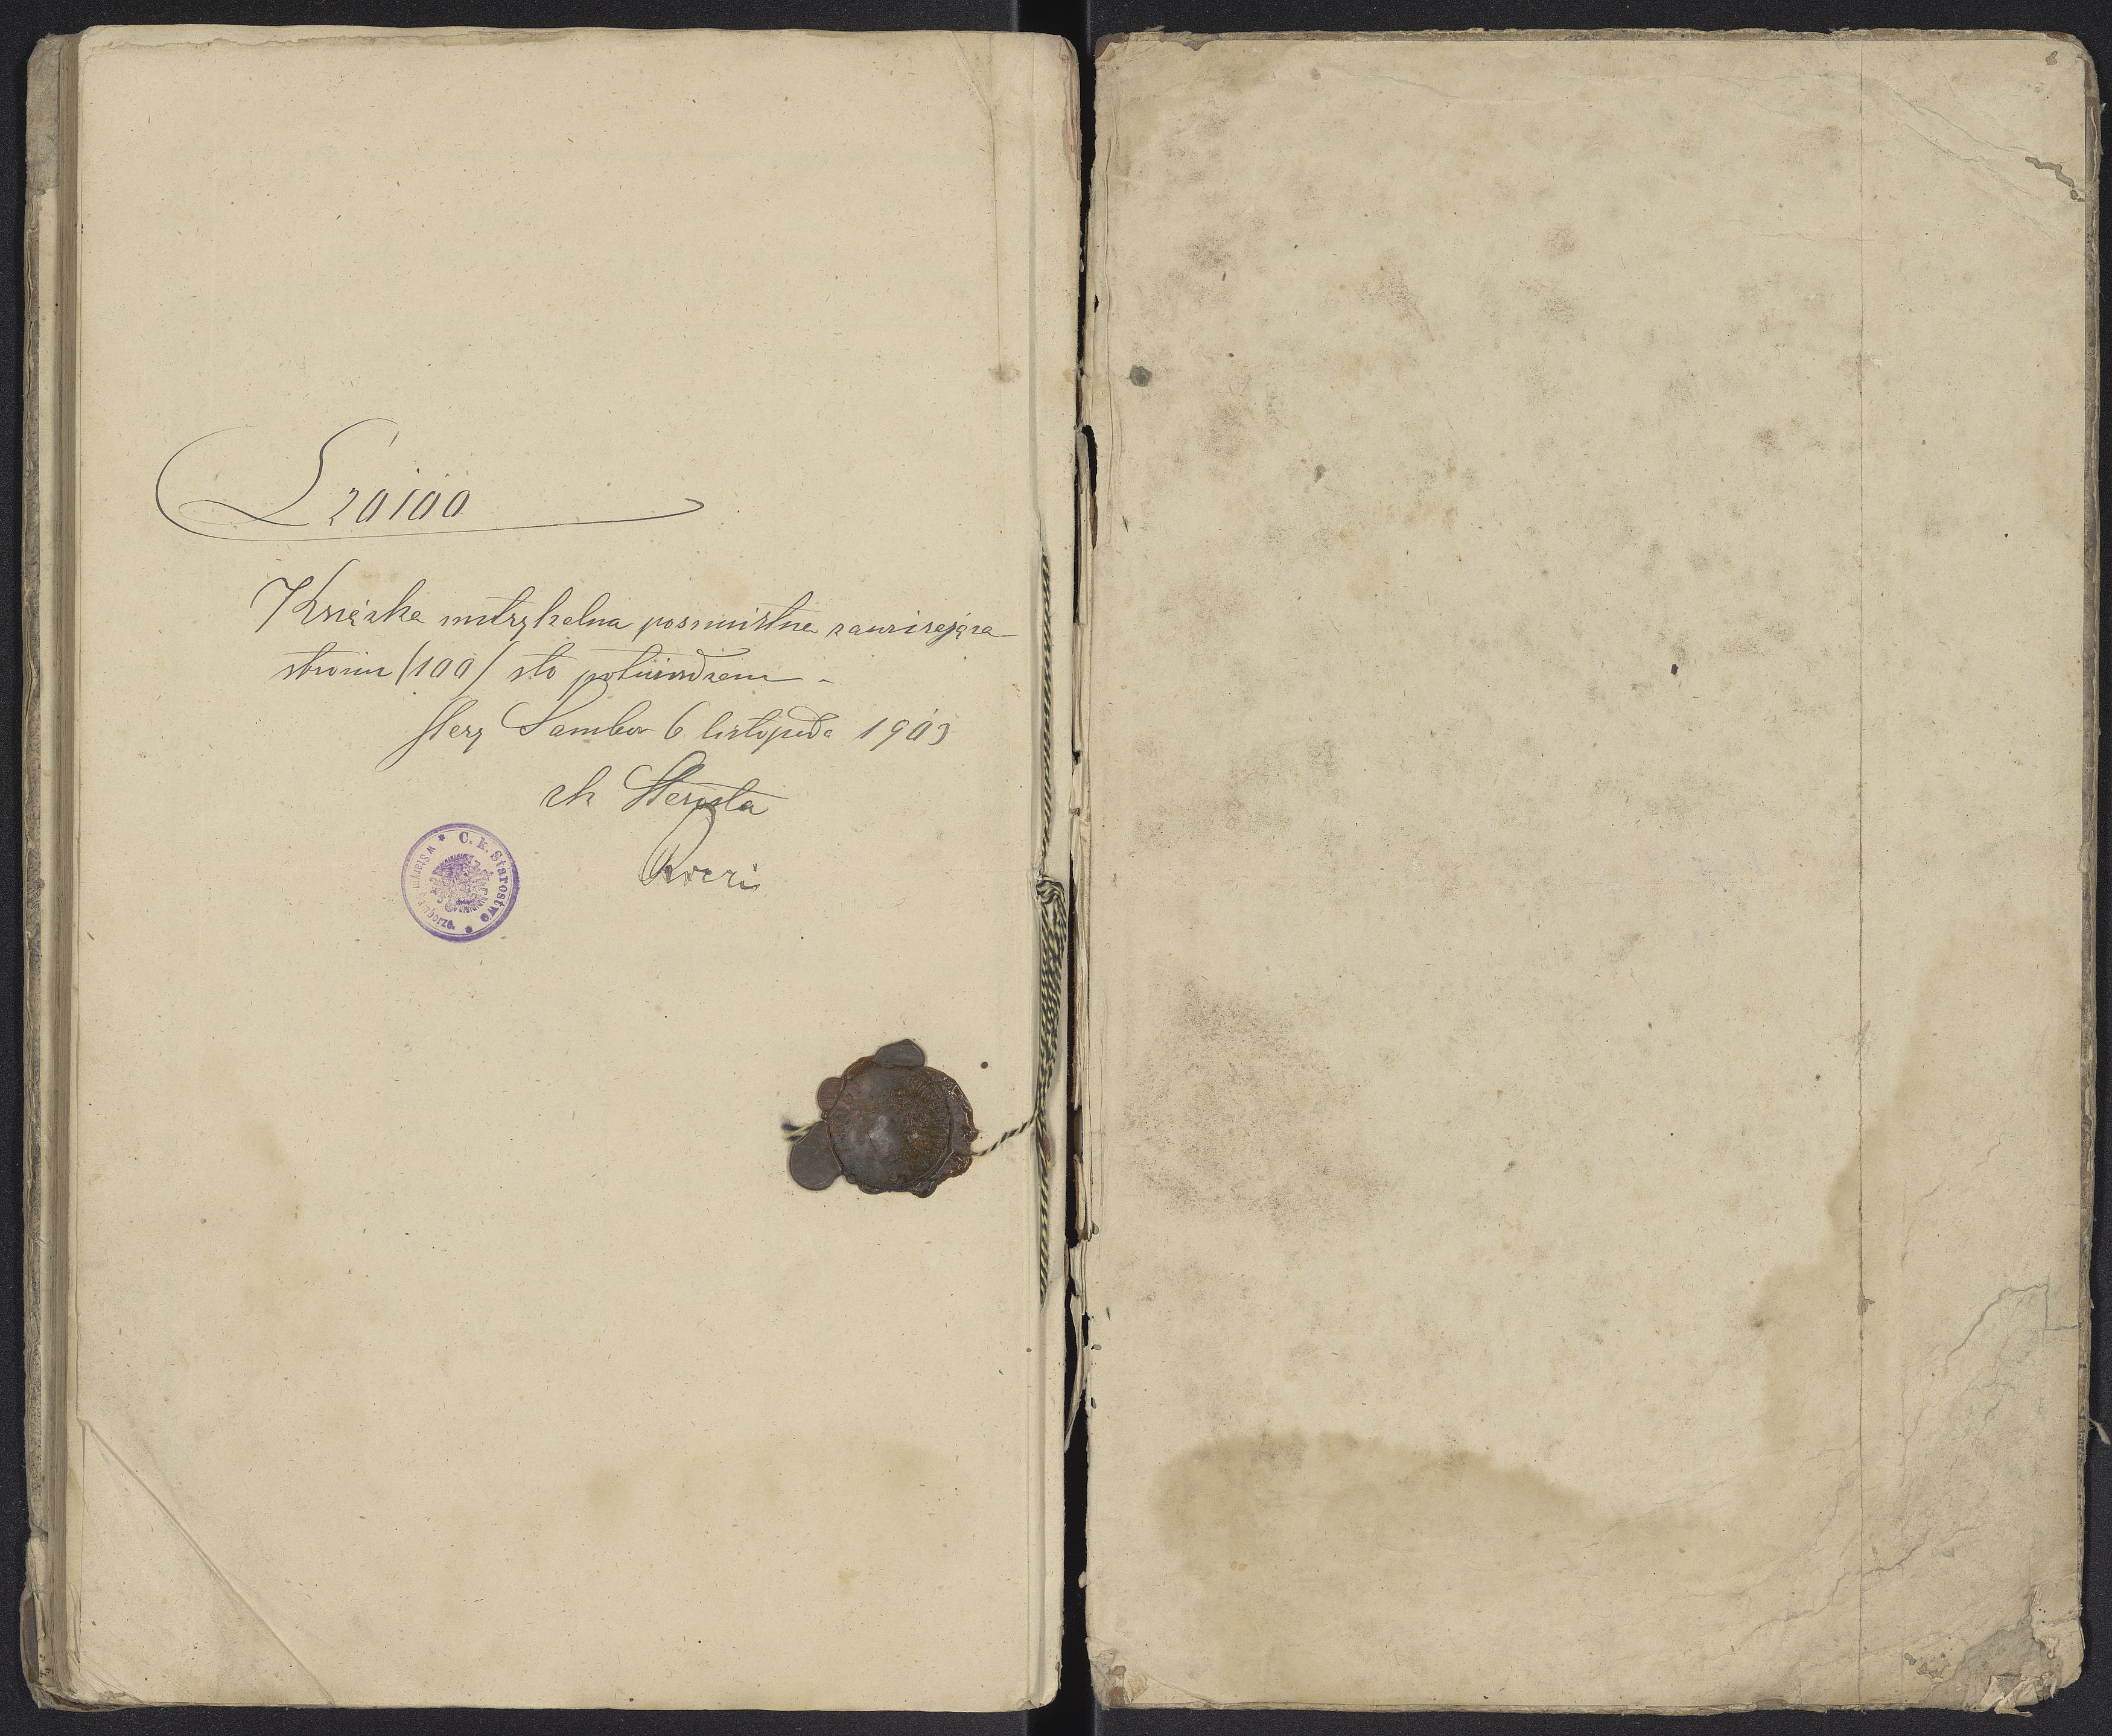 L 20100
Książka metrykalna pośmiertna zawierająca
stronic (100) sto potwierdzam -
Stary Sambor 6 listopada 1903
ck Starosta
C. k. Starostwo
w Starym